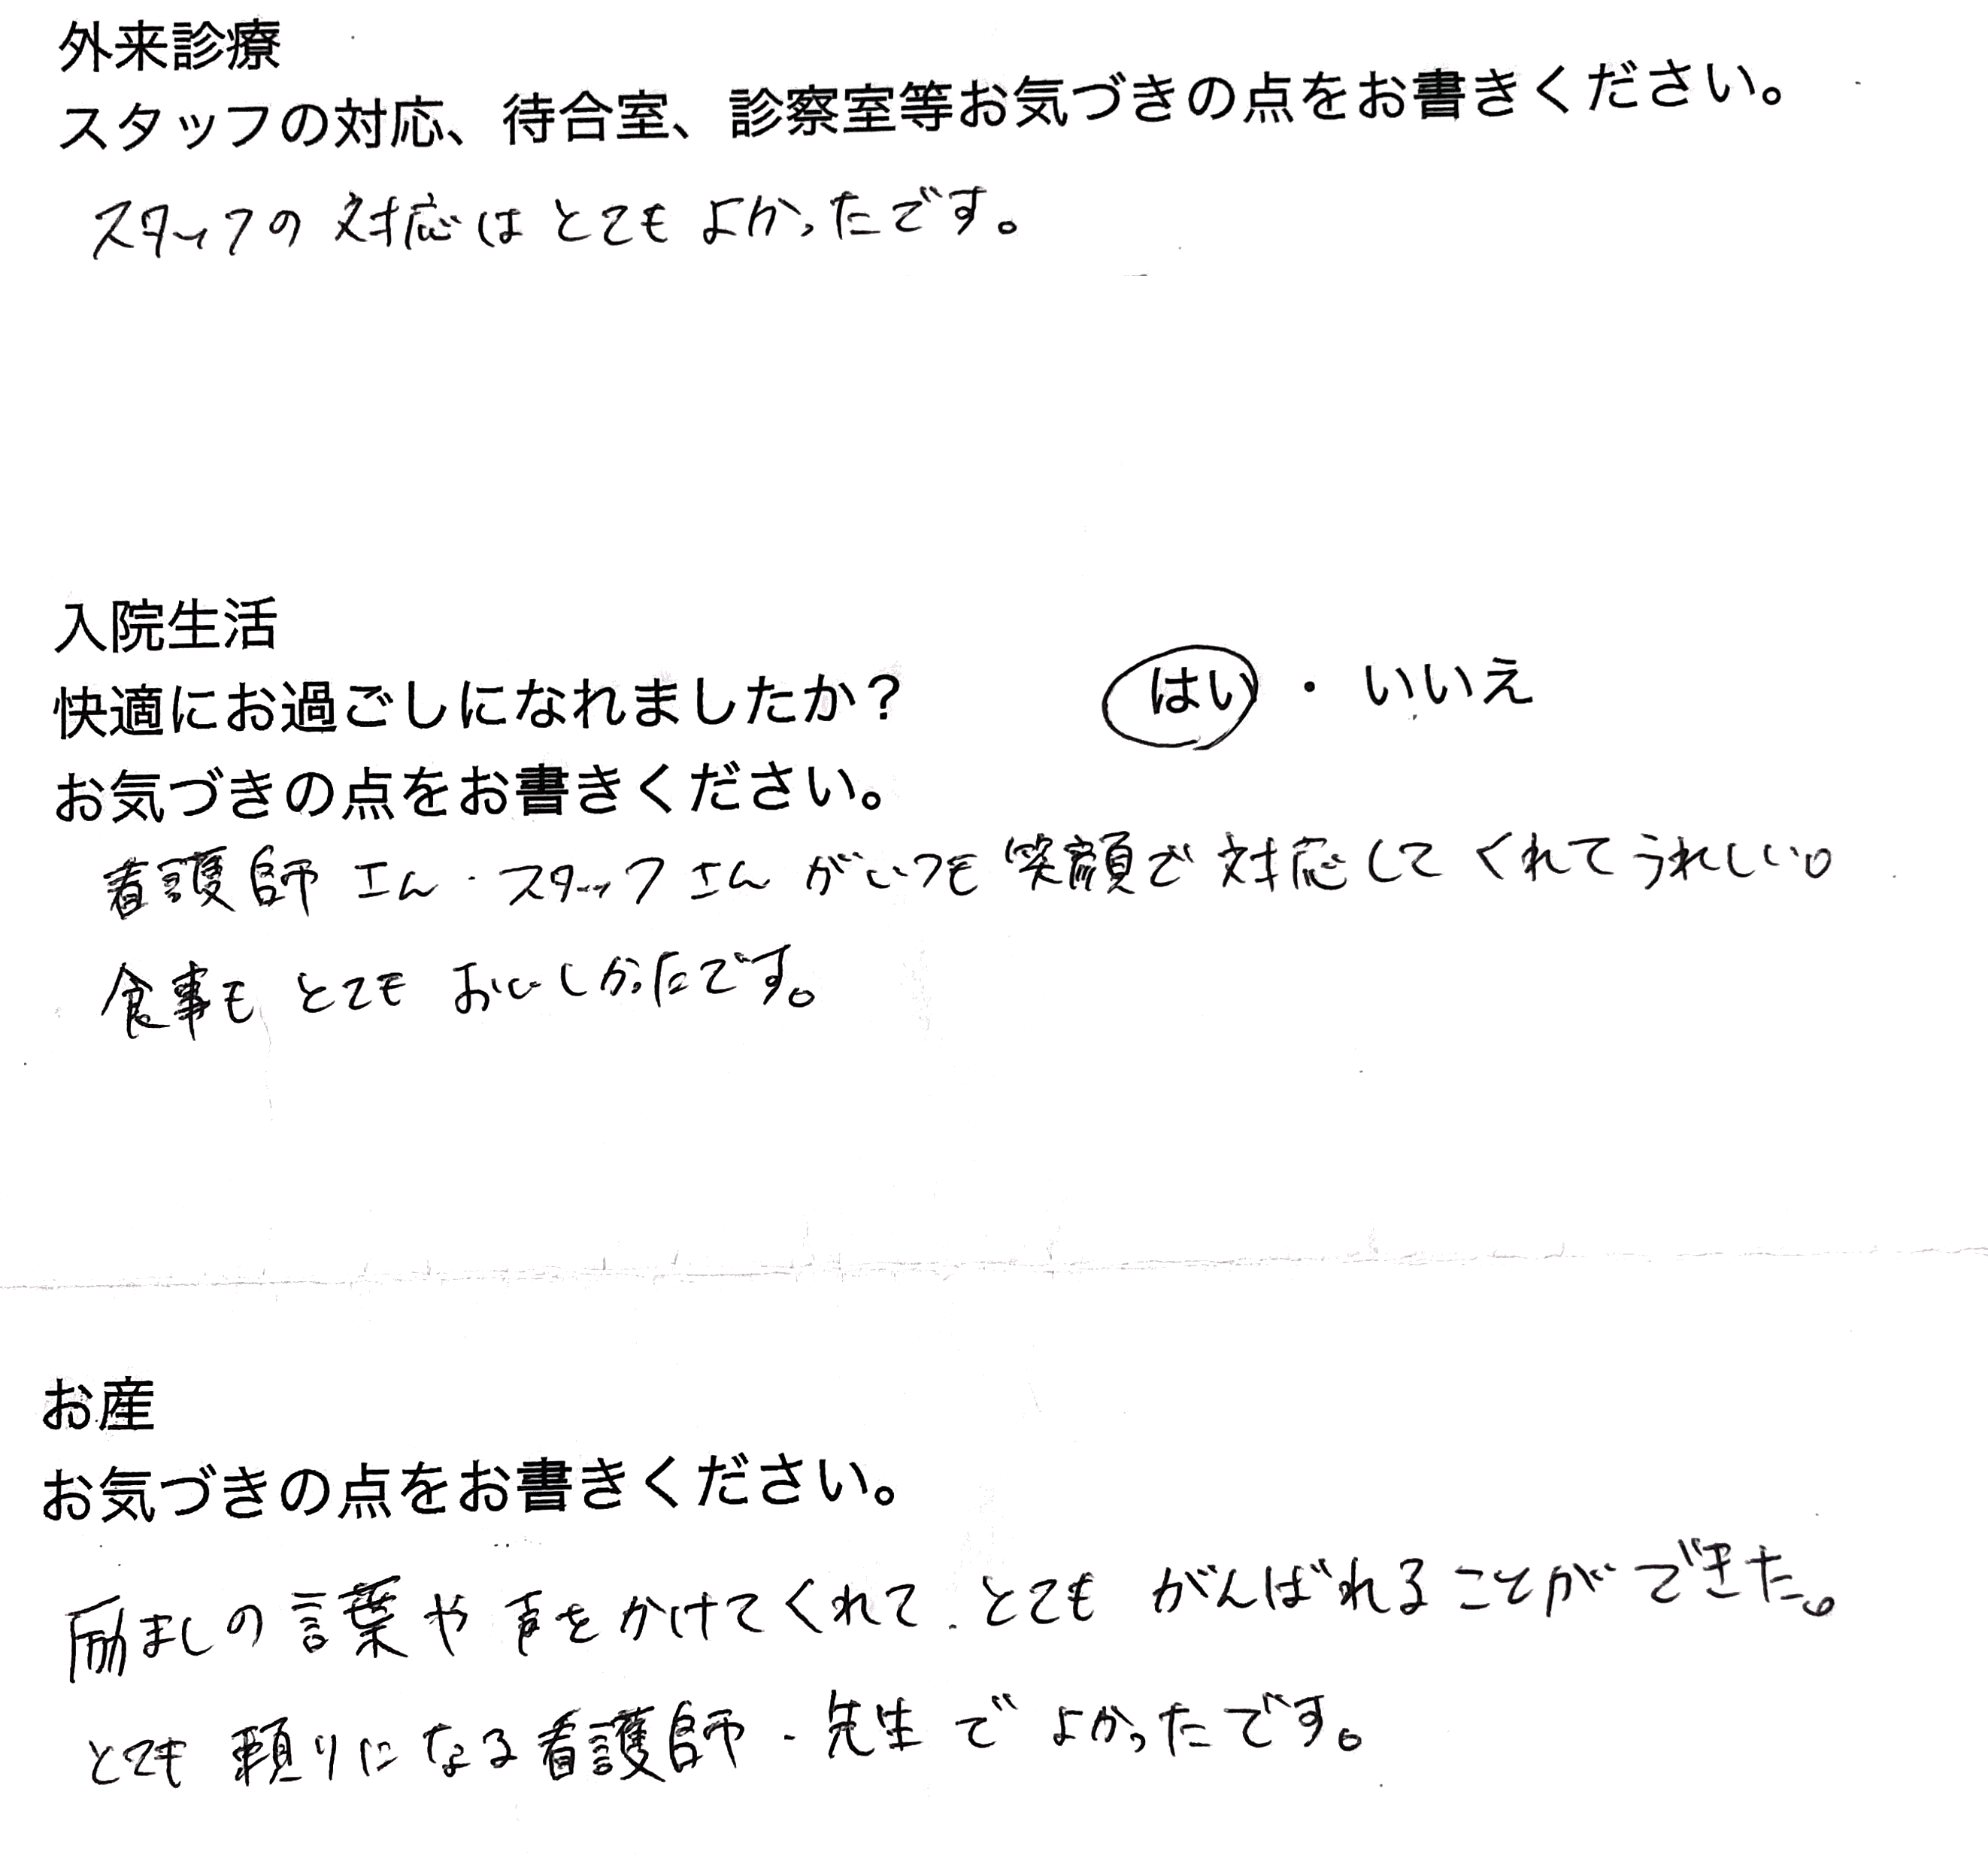 外来診療
スタッフの対応、待合室、診察室等お気づきの点をお書きください。
スタッフの対応はとてもよかったです。
入院生活
快適にお過ごしになれましたか? はい ・ いいえ
お気づきの点をお書きください。
看護師さん・スタッフさんがいつも笑顔で対応してくれてうれしい。
食事もとてもおいしかったです。
お産
お気づきの点をお書きください。
励ましの言葉や声をかけてくれて、とてもがんばれることができた。
とても頼りになる看護師・先生でよかったです。